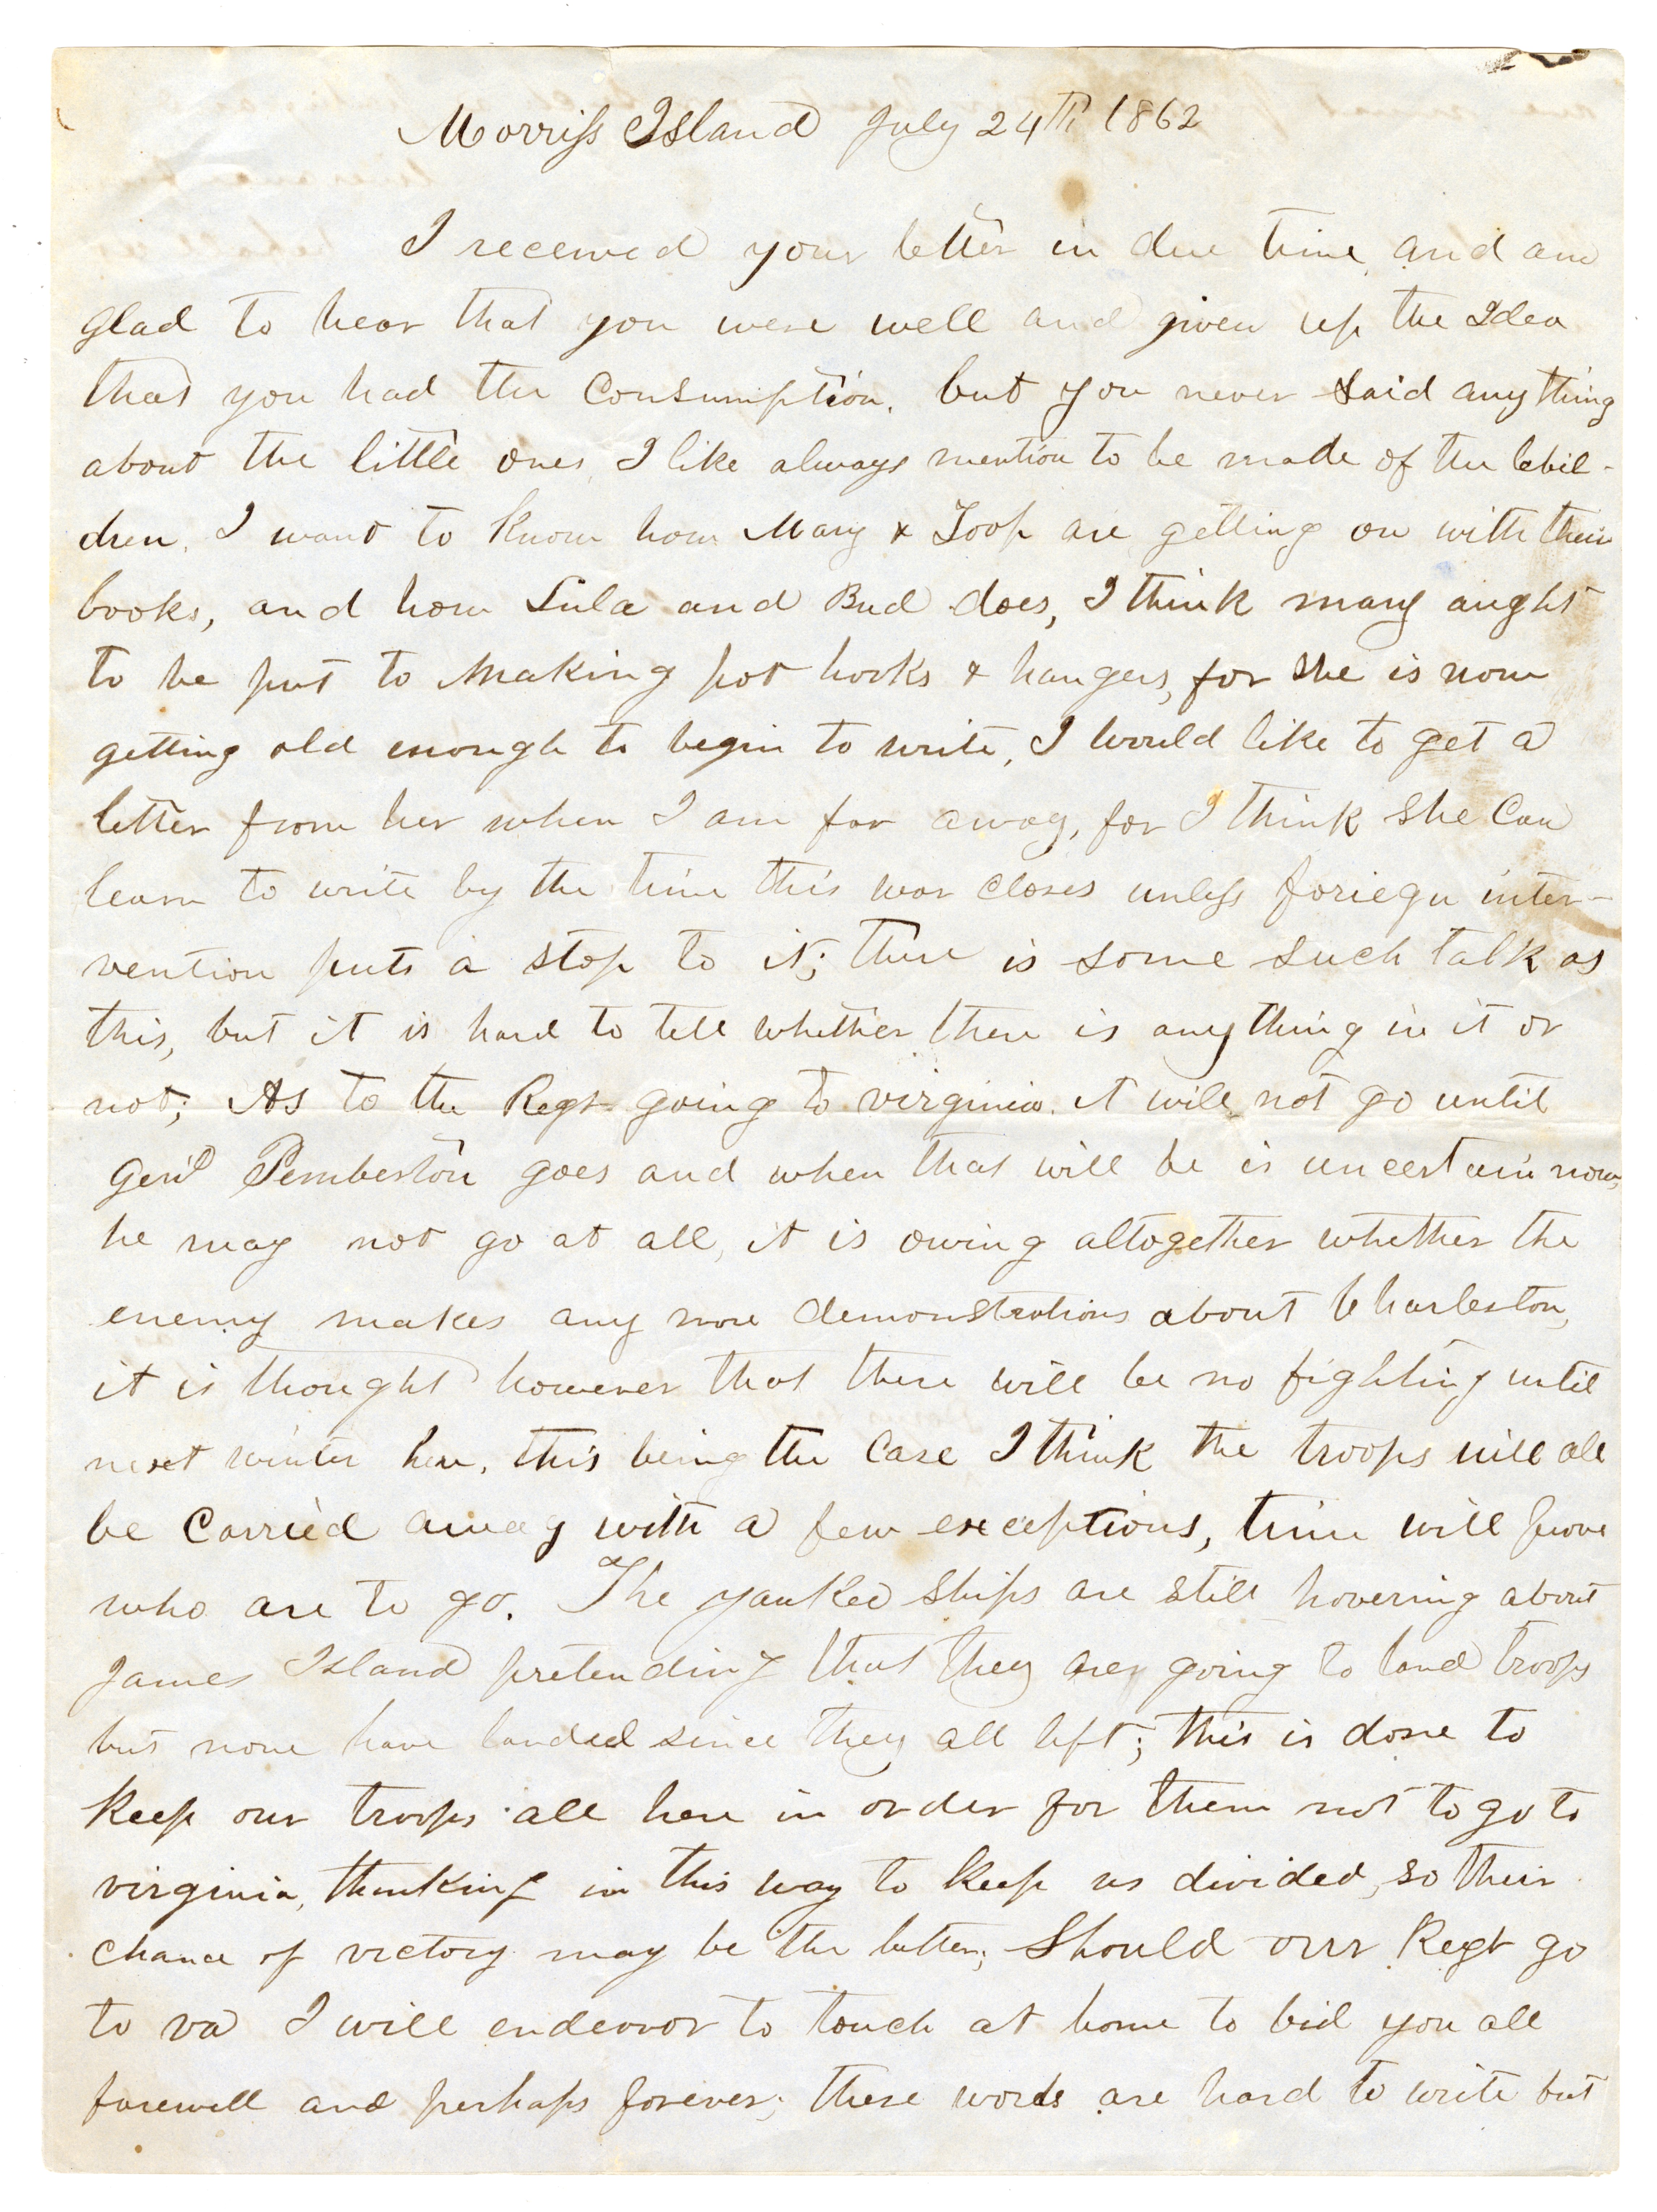 Morriss Island July 24th 1862
I received your letter in due time, and am
glad to hear that you were well and given up the Idea
that you had the Consumption, but you never said anything
about the little ones, I like always mention to be made of the Chil-
dren, I want to know how Mary & Toop are getting on with their
books, and how Lula and Bud does, I think mary aught
to be put to making pot hooks & hangers, for she is now
getting old enough to begin to write, I would like to get a
letter from her when I am far away, for I think she Can
learn to write by the time this war closes unless foriegn inter-
vention puts a stop to it; there is some such talk as
this, but it is hard to tell whether there is any thing in it or
not; As to the Regt going to virginia. it will not go until
Genl Pemberton goes and when that will be is uncertain now,
he may not go at all, it is owing altogether whether the
enemy makes any more demonstrations about Charleston,
it is thought however that there will be no fighting until
next winter here, this being the Case I think the troops will all
be Carried away with a few exceptions, time will prove
who are to go. The yankee ships are still hovering about
James Island pretending that they are going to land troops
but none have landed since they all left; this is done to
Keep our troops all here in order for them not to go to
virginia, thinking in this way to Keep us divided, so their
chance of victory may be the better; Should our Regt go
to va I will endeavor to touch at home to bid you all
farewell and perhaps forever; these words are hard to write but